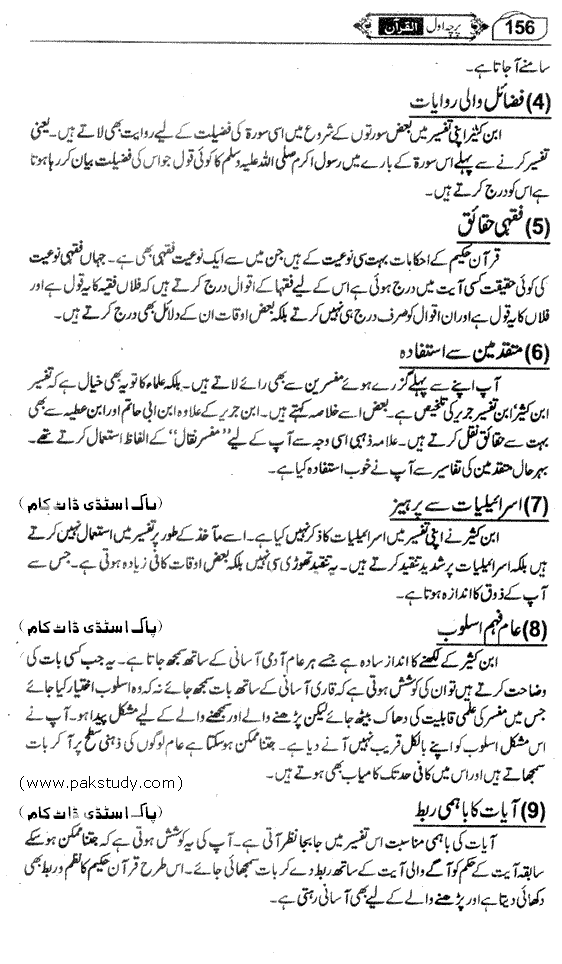 156 پرچہ اول القرآن
سامنے آ جاتا ہے۔
(4) فضائل والی روایات
ابن کثیر اپنی تفسیر میں بعض سورتوں کے شروع میں اسی سورۃ کی فضیلت کے لیے روایت بھی لاتے ہیں۔ یعنی
تفسیر کرنے سے پہلے اس سورۃ کے بارے میں رسول اکرم صلی اللہ علیہ وسلم کا کوئی قول جو اس کی فضیلت بیان کر رہا ہوتا
ہے اس کو درج کرتے ہیں۔
(5) فقہی حقائق
قرآن حکیم کے احکامات بہت سی نوعیت کے ہیں جن میں سے ایک نوعیت فقہی بھی ہے۔ جہاں فقہی نوعیت
کی کوئی حقیقت کسی آیت میں درج ہوئی ہے اس کے لیے فقہا کے اقوال درج کرتے ہیں کہ فلاں فقیہ کا یہ قول ہے اور
فلاں کا یہ قول ہے اور ان اقوال کو صرف درج ہی نہیں کرتے بلکہ بعض اوقات ان کے دلائل بھی درج کرتے ہیں۔
(6) متقدمین سے استفادہ
آپ اپنے سے پہلے گزرے ہوئے مفسرین سے بھی رائے لاتے ہیں۔ بلکہ علماء کا تو یہ بھی خیال ہے کہ تفسیر
ابن کثیر ابن تفسیر جریر کی تلخیص ہے۔ بعض اسے خلاصہ کہتے ہیں۔ ابن جریر کے علاوہ ابن ابی حاتم اور ابن عطیہ سے بھی
بہت سے حقائق نقل کرتے ہیں۔ علامہ ذہبی اسی وجہ سے آپ کے لیے ’’مفسر نقال‘‘ کے الفاظ استعمال کرتے تھے۔
بہرحال متقدمین کی تفاسیر سے آپ نے خوب استفادہ کیا ہے۔
(7) اسرائیلیات سے پرہیز (پاک اسٹڈی ڈاٹ کام)
ابن کثیر نے اپنی تفسیر میں اسرائیلیات کا ذکر نہیں کیا ہے۔ اسے مآخذ کے طور پر تفسیر میں استعمال نہیں کرتے
ہیں بلکہ اسرائیلیات پر شدید تنقید کرتے ہیں۔ یہ تنقید تھوڑی سی نہیں بلکہ بعض اوقات کافی زیادہ ہوتی ہے۔ جس سے
آپ کے ذوق کا اندازہ ہوتا ہے۔
(8) عام فہم اسلوب (پاک اسٹڈی ڈاٹ کام)
ابن کثیر کے لکھنے کا انداز سادہ ہے جسے ہر عام آدمی آسانی کے ساتھ سمجھ جاتا ہے۔ یہ جب کسی بات کی
وضاحت کرتے ہیں تو ان کی کوشش ہوتی ہے کہ قاری آسانی کے ساتھ بات سمجھ جائے نہ کہ وہ اسلوب اختیار کیا جائے
جس میں مفسر کی علمی قابلیت کی دھاک بیٹھ جائے لیکن پڑھنے والے اور سمجھنے والے کے لیے مشکل پیدا ہو۔ آپ نے
اس مشکل اسلوب کو اپنے بالکل قریب نہیں آنے دیا ہے۔ جتنا ممکن ہو سکتا ہے عام لوگوں کی ذہنی سطح پر آ کر بات
سمجھاتے ہیں اور اس میں کافی حد تک کامیاب بھی ہوتے ہیں۔ (www.pakstudy.com)
(9) آیات کا باہمی ربط (پاک اسٹڈی ڈاٹ کام)
آیات کی باہمی مناسبت اس تفسیر میں جا بجا نظر آتی ہے۔ آپ کی یہ کوشش ہوتی ہے کہ جتنا ممکن ہو سکے
سابقہ آیت کے حکم کو آگے والی آیت کے ساتھ ربط دے کر بات سمجھائی جائے۔ اس طرح قرآن حکیم کا نظم و ربط بھی
دکھائی دیتا ہے اور پڑھنے والے کے لیے بھی آسانی رہتی ہے۔